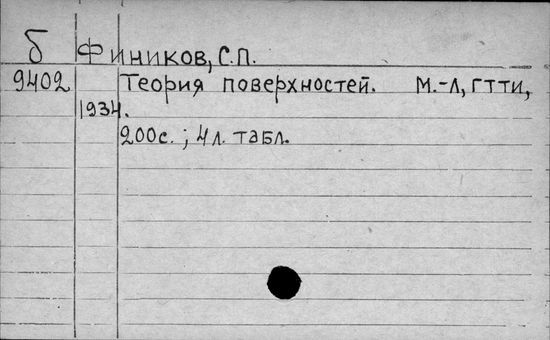 б Фиников, С.П.
9402 Теория поверхностей. М.-Л, ГТТИ,
1934.
200с.; 4л. табл.